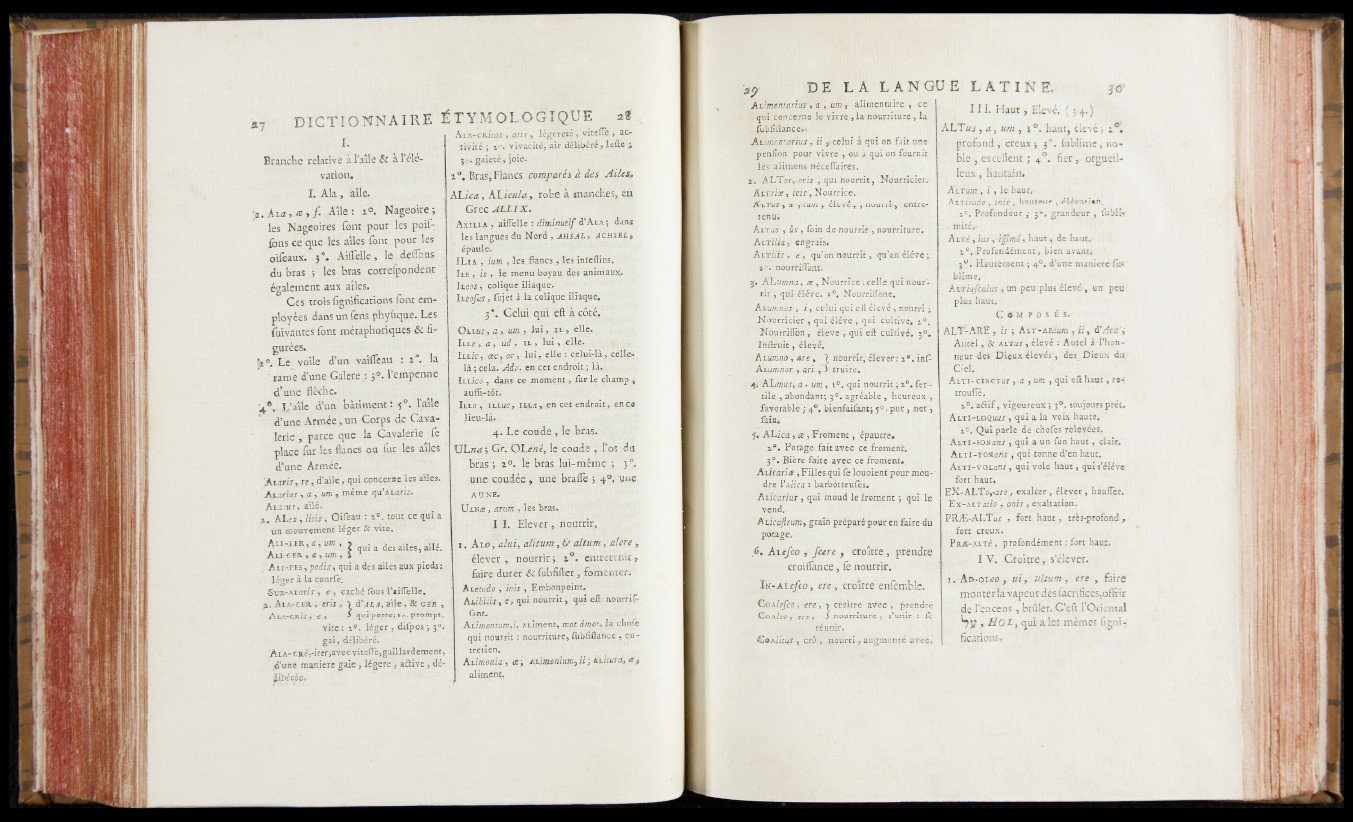 27 DICTIONNAIRE ÉTYMOLOGIQUE 28
I.
Branche relative à l'aîle & à l'élé-
vation.
I. Ala, aîle.
1. ALA, æ, f. Aîle : 2°. Nageoire ;
les Nageoires sont pour les pois-
sons ce que les aîles sont pour les
oiseaux. 3°. Aisselle, le dessous
du bras ; les bras correspondent
également aux aîles.
Ces trois significations sont em-
ployées dans un sens physique. Les
suivantes sont métaphoriques & fi-
gurées.
1°. Le voile d'un vaisseau : 2°. la
rame d'une Galere : 3°. l'empenne
d'une flèche.
4°. L'aîle d'un bâtiment : 5°. l'aîle
d'une Armée, un Corps de Cava-
lerie, parce que la Cavalerie se
place sur les flancs ou sur les aîles
d'une Armée.
ALaris, re, d'aîle, qui concerne les aîles.
ALarius, a, um, même qu'ALaris.
ALatus, aîlé.
2. ALes, litis, Oiseau : 2°. tout ce qui a
un mouvement léger & vîte.
ALI-FER, a, um, } qui a des aîles, aîlé.
ALI-GER, a, um,
ALI-PES, pedis, qui a des aîles aux pieds :
léger à la course.
SUB-ALaris, e, caché sous l'aisselle.
3. ALA-CER, eris, } d'ALA, aîle, & GER,
ALA-CRIS, e, } qui porte; 1°. prompt,
vîte : 2°. léger, dispos ; 3°.
gai, délibéré.
ALA-CRé,-iter, avec vitesse, gaillardement,
d'une maniere gaie, légere, active, dé-
libérée.
ALA-CRitas, atis, légereté, vîtesse, ac-
tivité ; 2°. vivacité, air délibéré, leste ;
3°. gaieté, joie.
2°. Bras, Flancs comparés à des Ailes.
ALica, ALicula, robe à manches, en
Grec ALLIX.
AXILLA, aisselle : diminutif d'ALA ; dans
les langues du Nord, AHSAL, ACHSEL,
épaule.
ILIA, ium, les flancs, les intestins.
ILE, is, le menu boyau des animaux.
ILeos, colique iliaque.
ILeosus, sujet à la colique iliaque.
3°. Celui qui est à côté.
OLLus, a, um, lui, IL, elle.
ILLE, a, ud, IL, lui, elle.
ILLic, æc, oc, lui, elle : celui-là, celle-
là ; cela. Adv. en cet endroit ; là.
ILLico, dans ce moment, sur le champ,
aussi-tôt.
ILLò, ILLUC, ILLà, en cet endroit, en ce
lieu-là.
4. Le coude, le bras.
ULna ; Gr. OLené, le coude, l'os du
bras ; 2°. le bras lui-même ; 3°.
une coudée, une brasse ; 4°, une
AUNE.
ULnæ, arum, les bras.
II. Elever, nourrir,
1. ALO, alui, alitum, & altum, alere,
élever, nourrir ; 2°. entretenir,
faire durer & subsister, fomenter.
ALetudo, inis, Embonpoint.
ALibilis, e, qui nourrit, qui est nourris-
sant.
ALimentum, i, ALiment, mot à mot, la chose
qui nourrit : nourriture, subsistance, en-
tretien.
ALimonia, æ ; ALimonium, ii ; ALitura, æ,
aliment.
29 DE LA LANGUE LATINE. 30
ALimentarius, a, um, alimentaire, ce
qui concerne le vivre, la nourriture, la
subsistance.
ALimentarius, ii, celui à qui on fait une
pension pour vivre, ou à qui on fournit
les alimens nécessaires.
2. ALTor, oris, qui nourrit, Nourricier.
ALTrix, icis, Nourrice.
ALTus, a, um, élevé, nourri, entre-
tenu.
ALTus, ûs, soin de nourrir, nourriture.
ALTilia, engrais.
ALTilis, e, qu'on nourrit, qu'on éléve ;
2°. nourrissant.
3. ALumna, æ, Nourrice, celle qui nour-
rit, qui éléve. 2°. Nourrissone.
ALumnus, i, celui qui est élevé, nourri ;
Nourricier, qui éléve, qui cultive. 2°.
Nourrisson, éleve, qui est cultivé. 3°.
Instruit, élevé.
ALumno, are, } nourrir, élever : 2°. ins-
ALumnor, ari, } truire.
4. ALmus, a, um, 1°. qui nourrit ; 2°. fer-
tile, abondant; 3°. agréable, heureux,
favorable ; 4°. bienfaisant; 5°. pur, net,
sain.
5. ALica, æ, Froment, épautre.
2°. Potage fait avec ce froment.
3°. Bière faite avec ce froment.
ALicariæ, Filles qui se louoient pour mou-
dre l'alica : barboteuses.
ALicarius, qui moud le froment ; qui le
vend.
ALicastrum, grain préparé pour en faire du
potage.
6. ALesco, scere, croître, prendre
croissance, se nourrir.
IN-ALesco, ere, croître ensemble.
CoALesco, ere, } croître avec, prendre
CoALeo, ere, } nourriture, s'unir : se
réunir.
CoALitus, crû, nourri, augmenté avec.
III. Haut, Elevé, (34.)
ALTus, a, um, 1°. haut, élevé ; 2°.
profond, creux ; 3°. sublime, no-
ble, excellent ; 4°. fier, orgueil-
leux, hautain.
ALTum, i, le haut.
ALTitudo, inis, hauteur, élévation.
2°. Profondeur ; 3°. grandeur, subli-
mité.
ALTè, ius, issimè, haut, de haut.
2°. Profondément, bien avant.
3°. Hautement ; 4°. d'une maniere su-
blime.
ALTiusculus, un peu plus élevé, un peu
plus haut.
COMPOSÉS.
ALT-ARE, is ; ALT-ARium, ii, d'Ara,
Autel, & ALTus, élevé : Autel à l'hon-
neur des Dieux élevés, des Dieux du
Ciel.
ALTI-CINCTus, a, um, qui est haut, re-
troussé.
2°. actif, vigoureux ; 3°. toujours prêt.
ALTI-LOQuus, qui a la voix haute.
2°. Qui parle de choses relevées.
ALTI-SONans, qui a un son haut, clair.
ALTI-TONans, qui tonne d'en haut.
ALTI-VOLans, qui vole haut, qui s'éléve
fort haut.
EX-ALTo,-are, exalter, élever, hausser.
EX-ALTatio, onis, exaltation.
PRÆ-ALTus, fort haut, très-profond,
fort creux.
PRÆ-ALTè, profondément : fort haut.
IV. Croître, s'élever.
1. AD-OLEO, ui, ultum, ere, faire
monter la vapeur des sacrifices, offrir
de l'encens, brûler. C'est l'Oriental
HOL, qui a les mêmes signi-
fications.